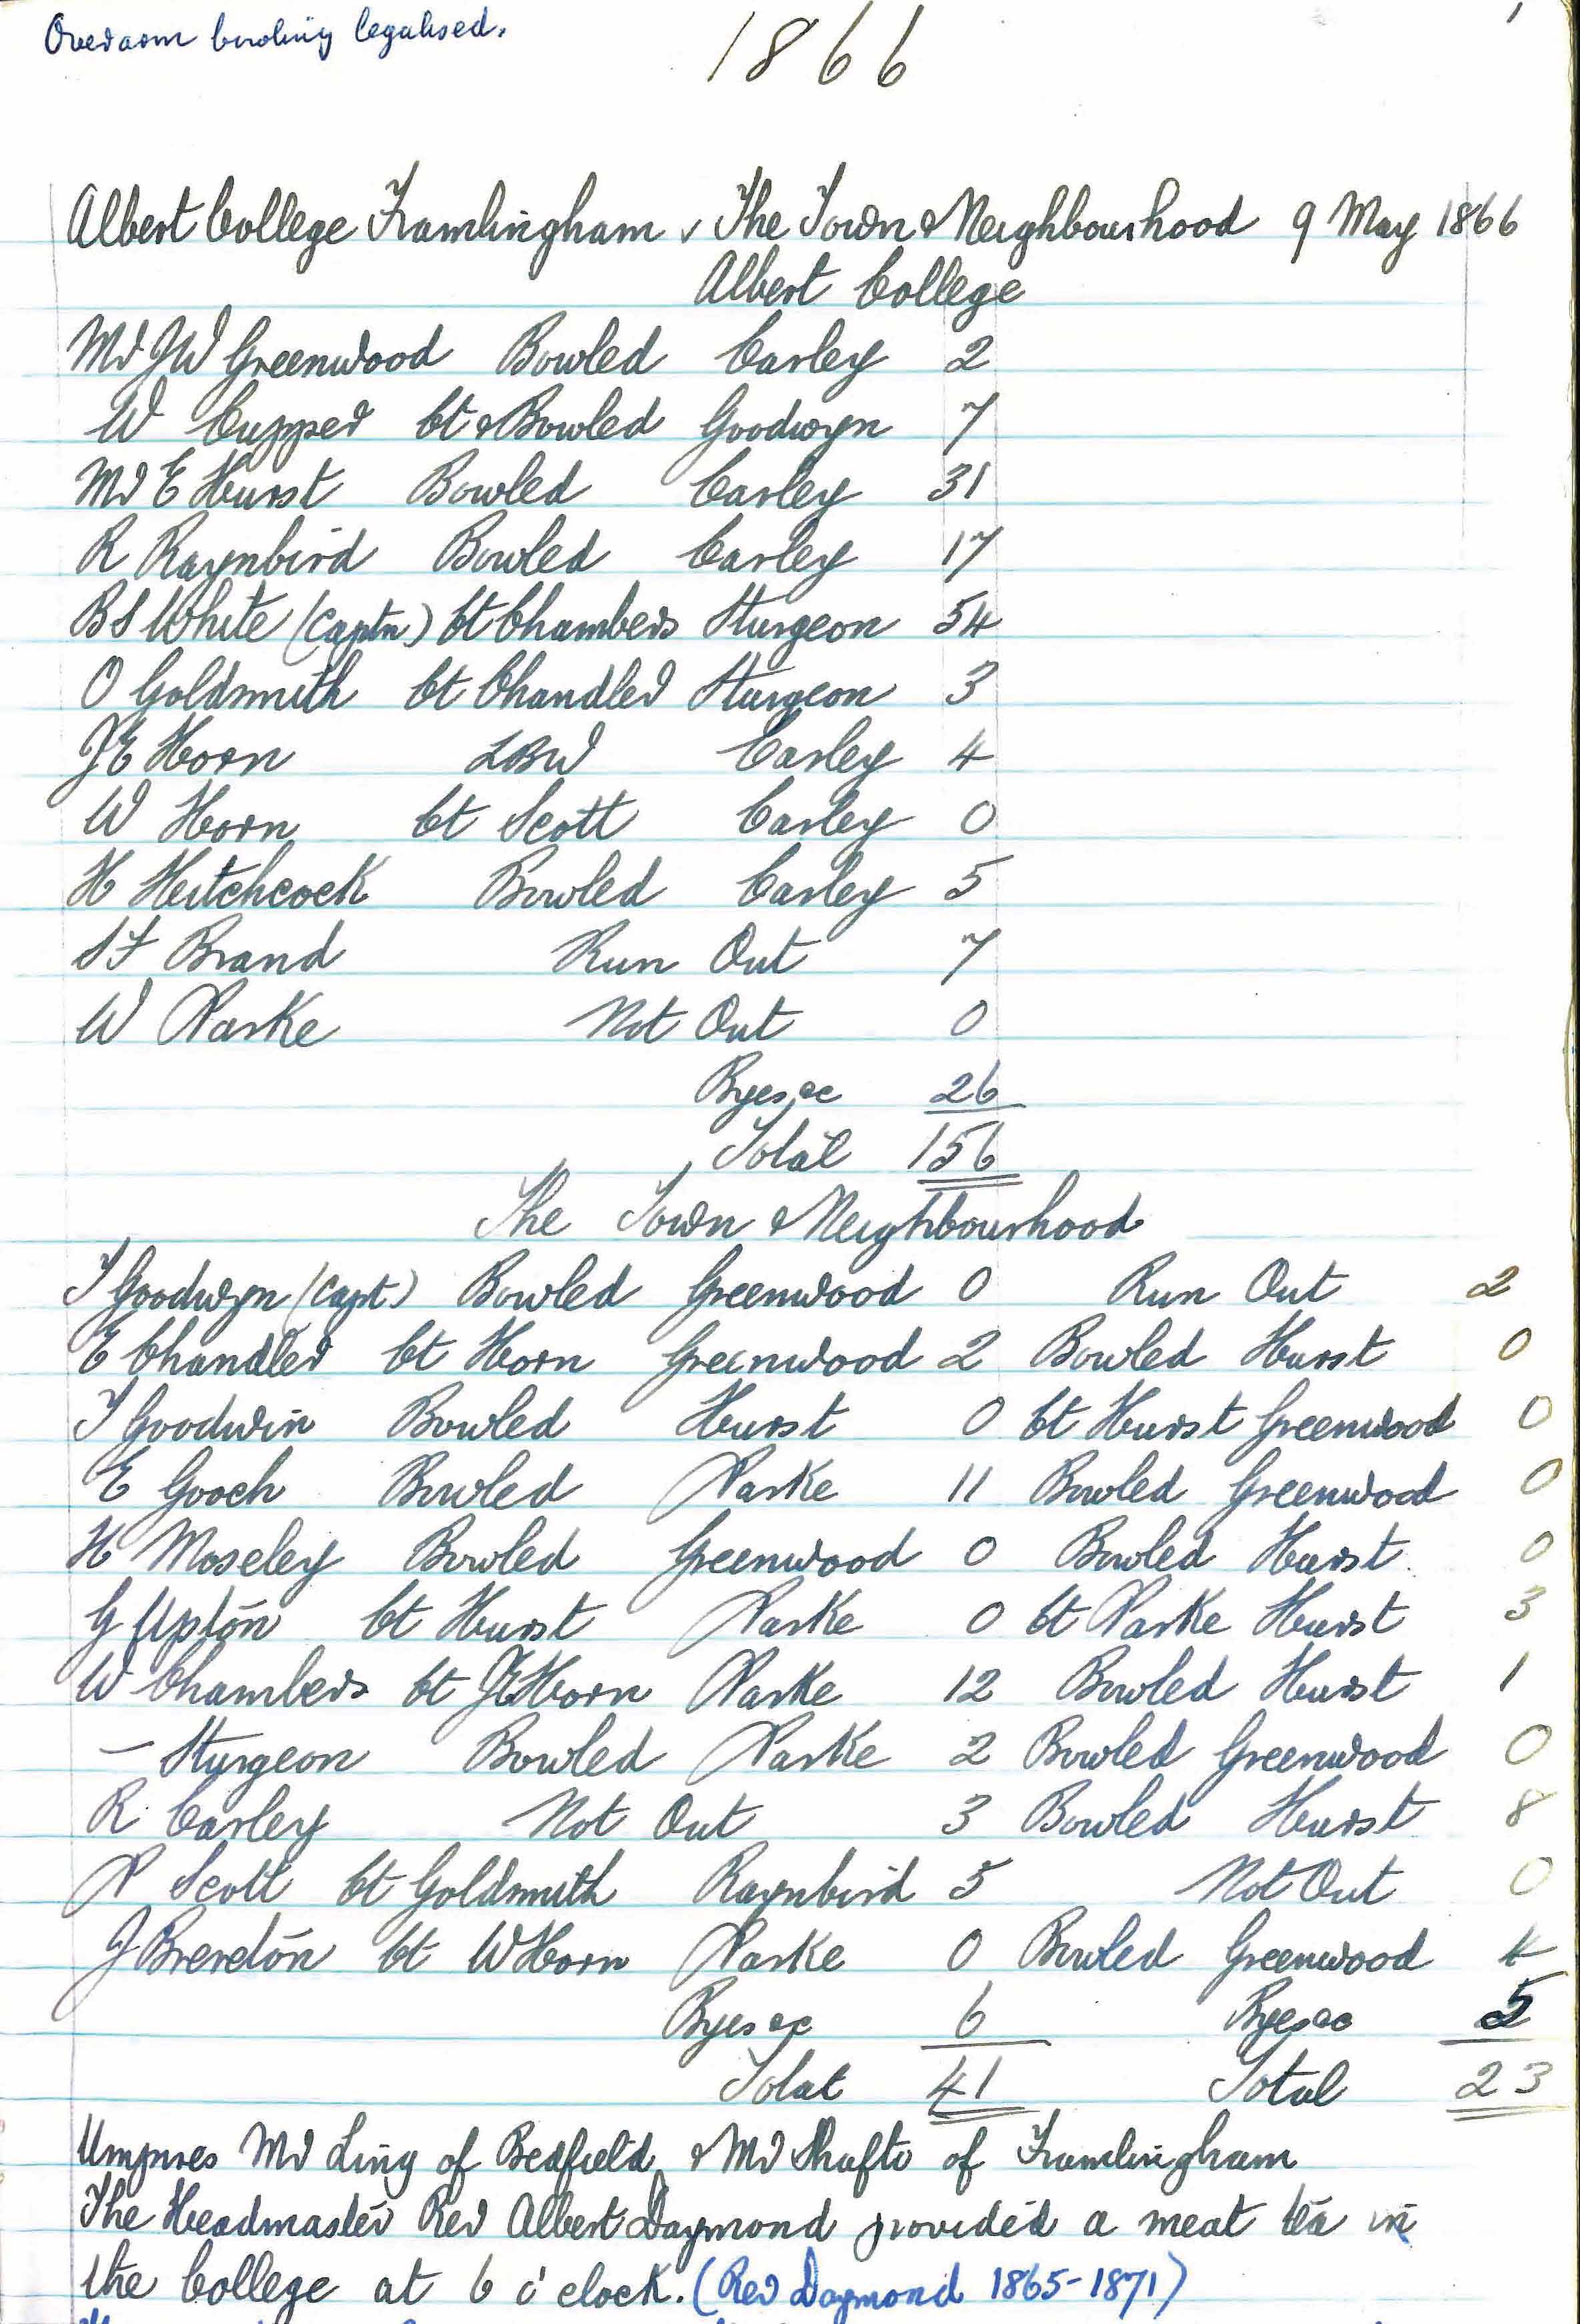 Overarm bowling legalised.
1866
1
Albert College Framlingham v The Town & Neighbourhood 9 May 1866
Albert College
Mr JW Greenwood Bowled Carley 2
W Cupper Ct & Bowled Goodwyn 7
Mr E Hurst Bowled Carley 31
R Raynbird Bowled Carley 17
BS White (Captn) Ct Chambers Sturgeon 54
O Goldsmith Ct Chandler Sturgeon 3
JE Horn LBW Carley 4
W Horn Ct Scott Carley 0
H Hitchcock Bowled Carley 5
SF Brand Run Out 7
W Parke Not Out 0
Byes &c 26
Total 156
The Town & Neighbourhood
T Goodwyn (Capt.) Bowled Greenwood 0 Run Out 2
E Chandler Ct Horn Greenwood 2 Bowled Hurst 0
T Goodwin Bowled Hurst 0 Ct Hurst Greenwood 0
E Gooch Bowled Parke 11 Bowled Greenwood 0
H Moseley Bowled Greenwood 0 Bowled Hurst 0
G Upton Ct Hurst Parke 0 Ct Parke Hurst 3
W Chambers Ct JE Horn Parke 12 Bowled Hurst 1
– Sturgeon Bowled Parke 2 Bowled Greenwood 0
R Carley Not Out 3 Bowled Hurst 8
P Scott Ct Goldsmith Raynbird 5 Not Out 0
J Brereton Ct W Horn Parke 0 Bowled Greenwood 4
Byes &c 6 Byes &c 5
Total 41 Total 23
Umpires Mr Ling of Bedfield & Mr Shafto of Framlingham
The Headmaster Rev Albert Daymond provided a meat tea in
the College at 6 o'clock. (Rev Daymond 1865-1871)